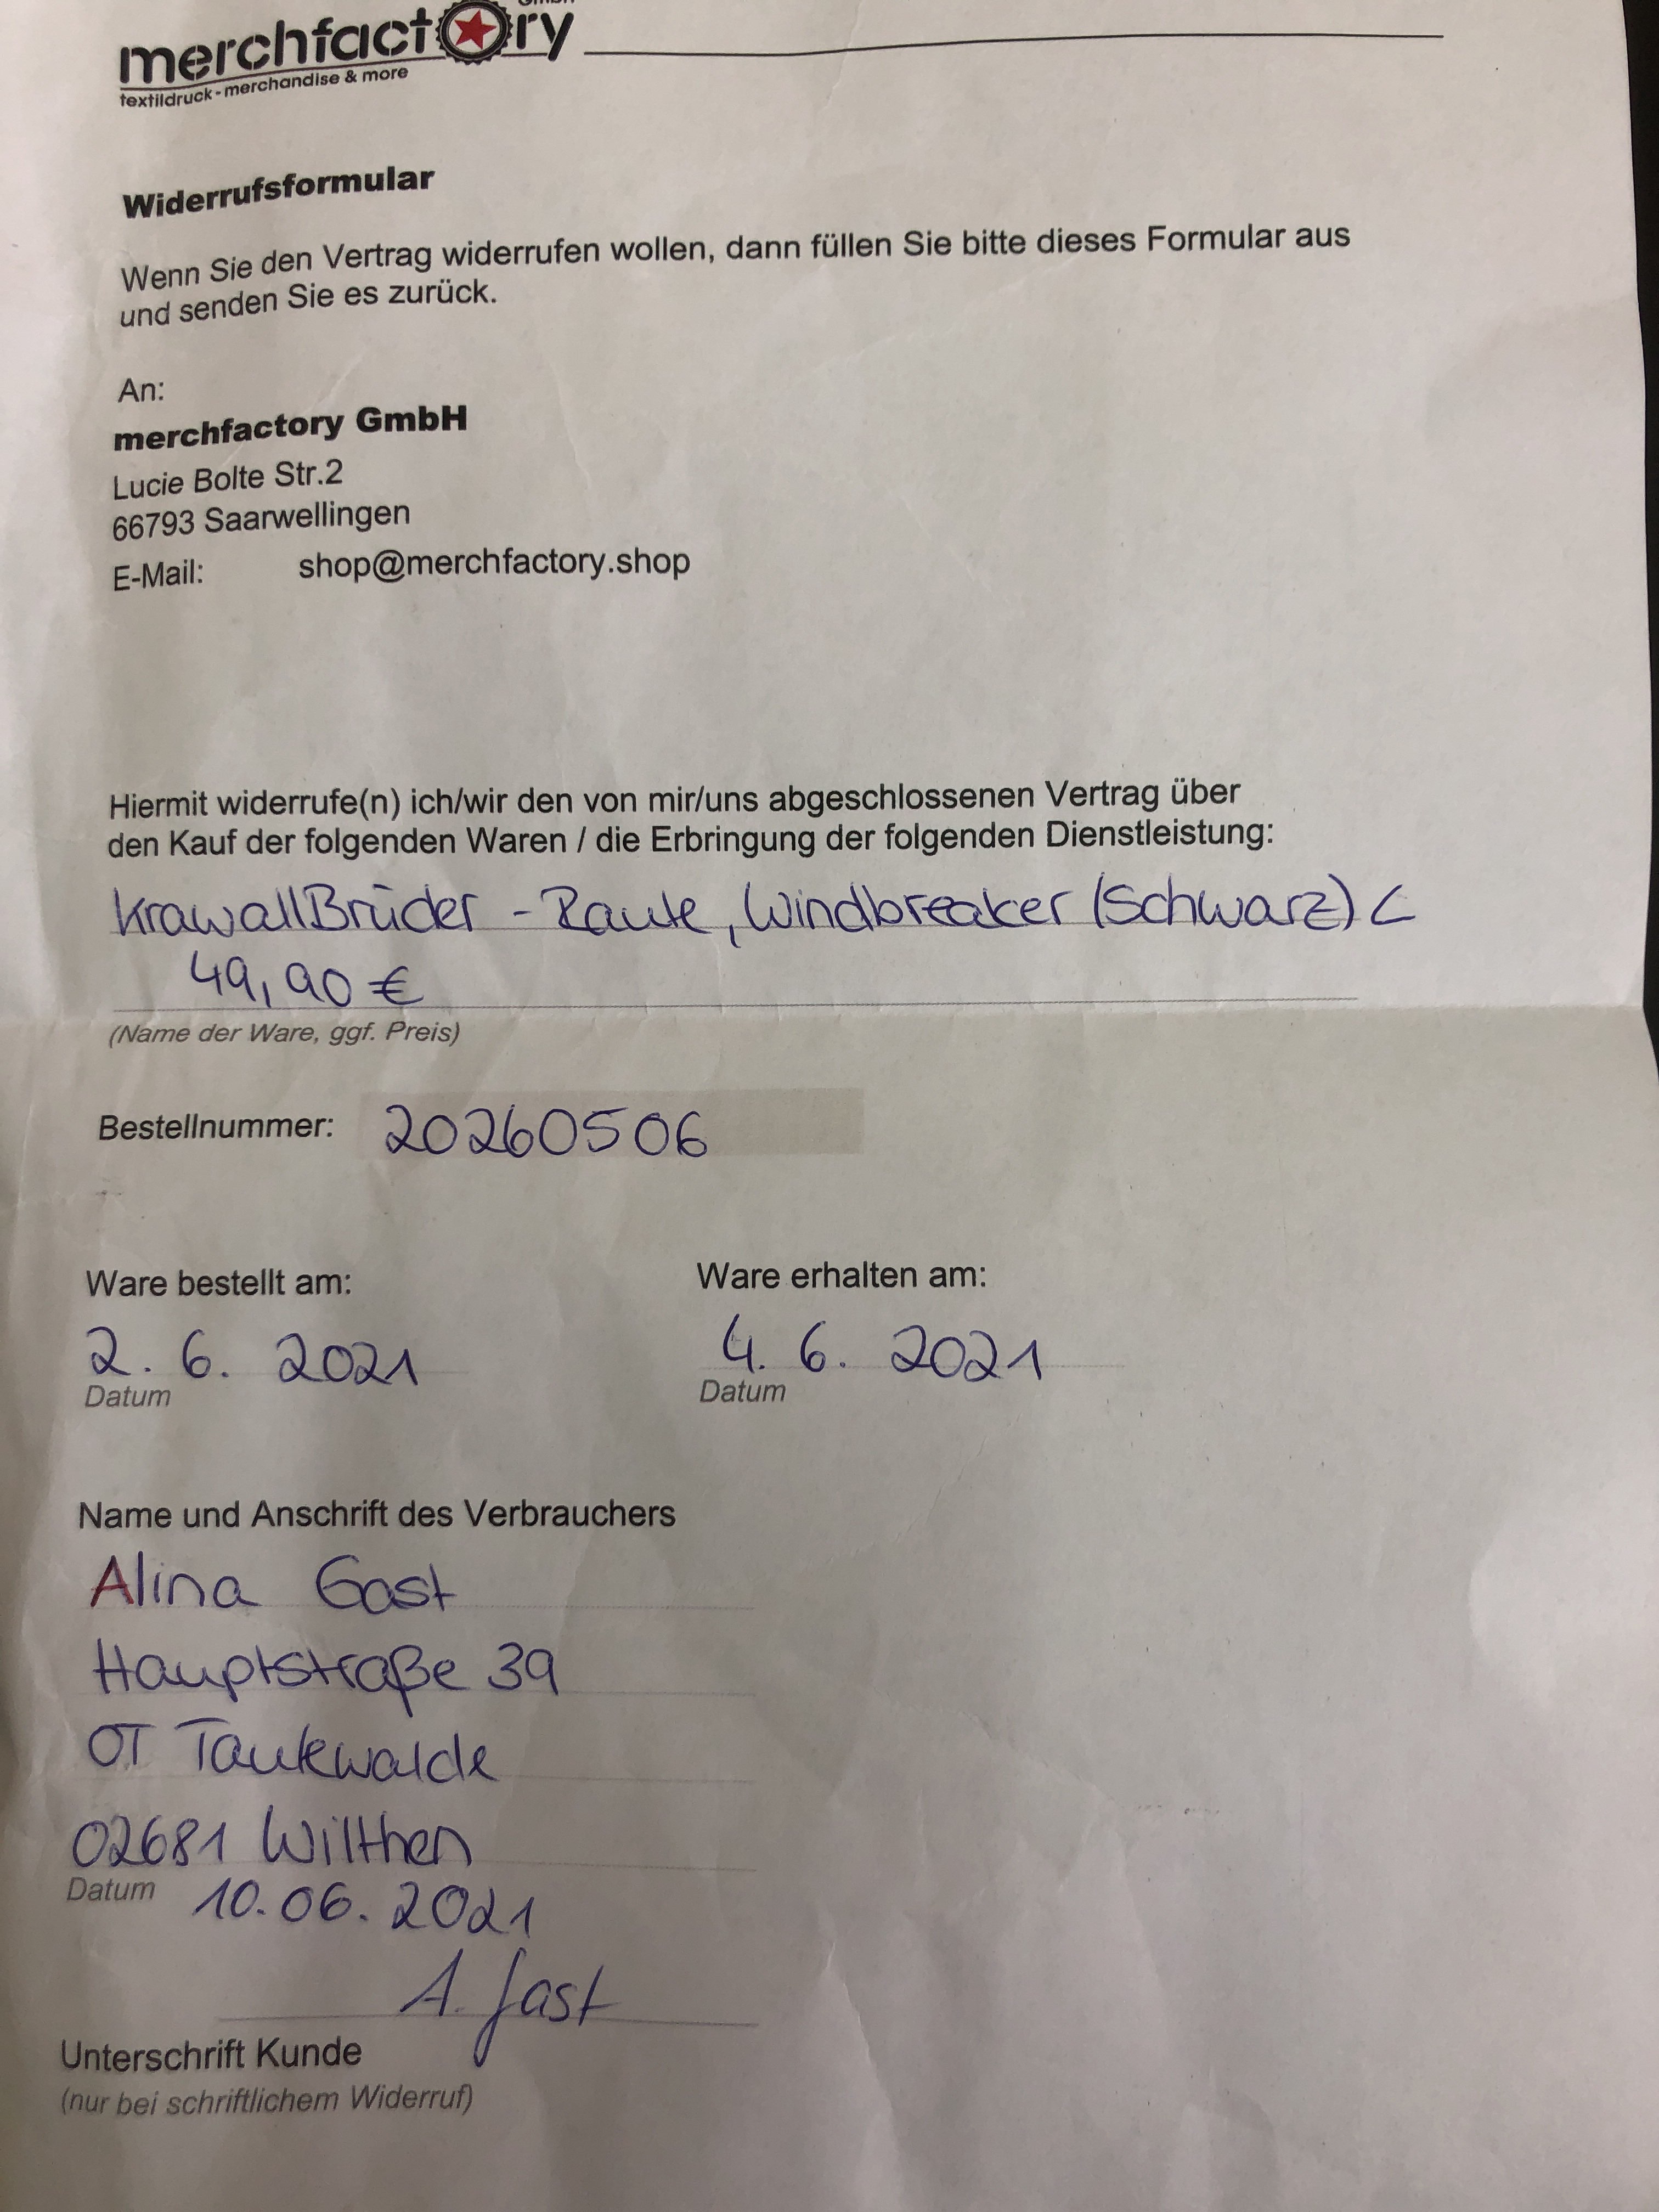 GmbH
merchfactory
textildruck - merchandise & more
Widerrufsformular
Wenn Sie den Vertrag widerrufen wollen, dann füllen Sie bitte dieses Formular aus
und senden Sie es zurück.
An:
merchfactory GmbH
Lucie Bolte Str.2
66793 Saarwellingen
E-Mail: shop@merchfactory.shop
Hiermit widerrufe(n) ich/wir den von mir/uns abgeschlossenen Vertrag über
den Kauf der folgenden Waren / die Erbringung der folgenden Dienstleistung:
KrawallBrüder - Raute, Windbreaker (Schwarz) L
49,90 €
(Name der Ware, ggf. Preis)
Bestellnummer: 20260506
Ware bestellt am: Ware erhalten am:
2. 6. 2021 4. 6. 2021
Datum Datum
Name und Anschrift des Verbrauchers
Alina Gast
Hauptstraße 39
OT Tautewalde
02681 Wilthen
Datum 10.06.2021
A. Gast
Unterschrift Kunde
(nur bei schriftlichem Widerruf)